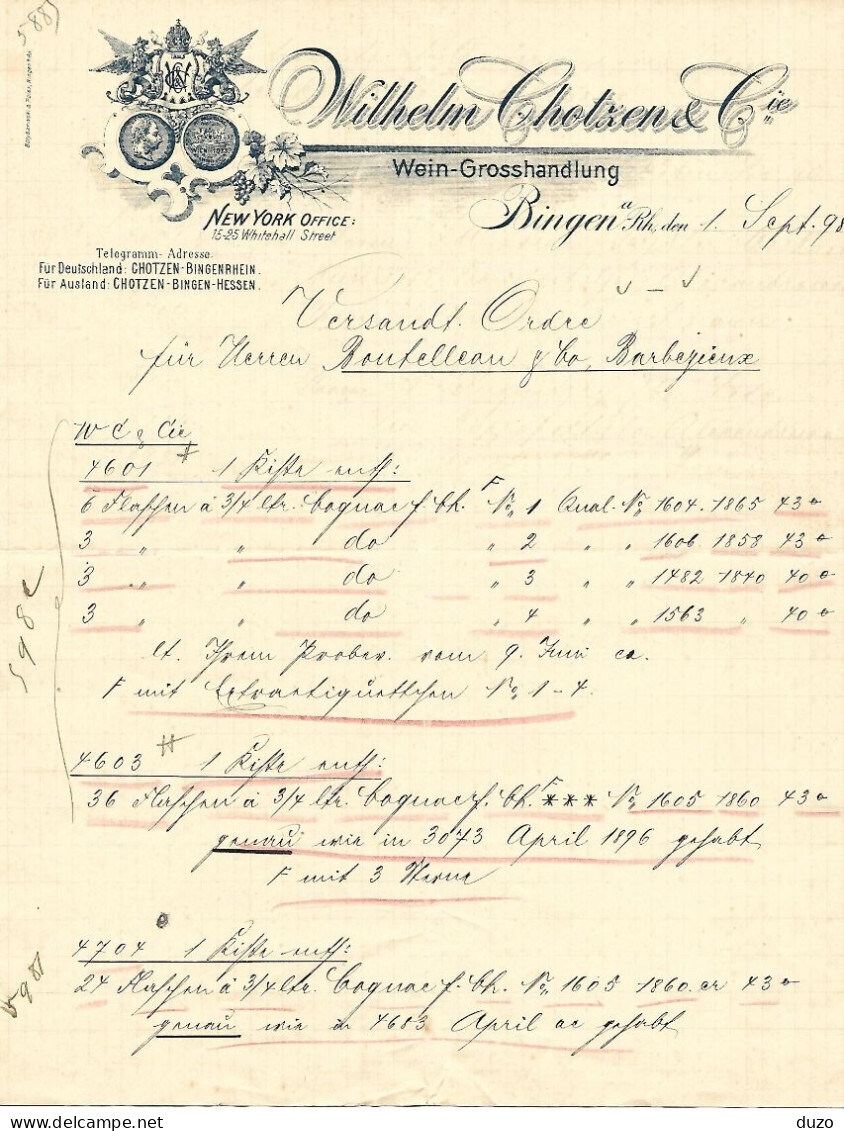 5885
Wilhelm Chotzen & Cie
Wein-Grosshandlung
NEW YORK OFFICE:
15-25 Whitehall Street
Bingen a/Rh, den 1. Sept. 98
Telegramm-Adresse:
Für Deutschland: CHOTZEN-BINGENRHEIN.
Für Ausland: CHOTZEN-BINGEN-HESSEN.
Versandt. Ordre
für Herren Boutelleau & Co, Barbezieux
W C & Cie,
4601 # 1 Kiste enth:
6 Flaschen à 3/4 ltr. Cognac f. Ch. F No 1 Qual. No 1604. 1865 43°
3 " " do " 2 " " 1606 1858 43°
3 " " do " 3 " " 1482 1840 40°
3 " " do " 4 " " 1563 " 40°
lt. Ihrem vom 9. Juni ca.
F mit Extraetiquettchen No. 1-4.
4603 # 1 Kiste enth:
36 Flaschen à 3/4 ltr. Cognac f. Ch. F *** No 1605 1860 43°
genau wie in 3073 April 1896 gehabt
F mit 3 Sterne
4704 1 Kiste enth:
24 Flaschen à 3/4 ltr. Cognac f. Ch. No 1605 1860 er 43°
genau wie in 4683 April ac gehabt
duzo